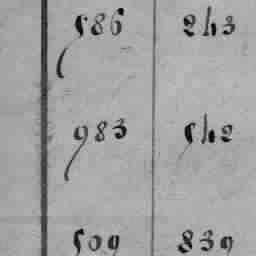 586 243
983 542
509 839